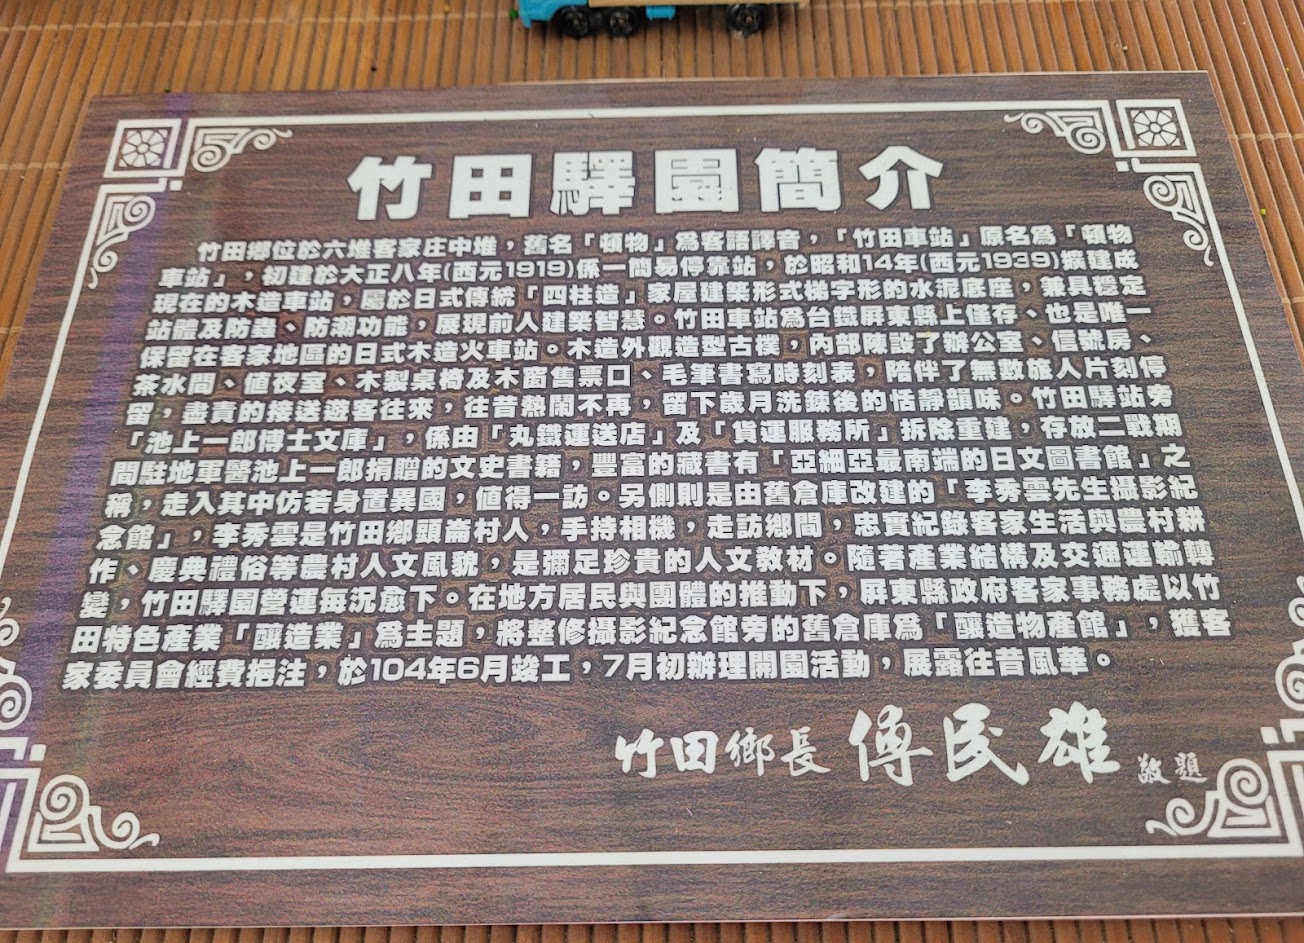 竹田驛園簡介
竹田鄉位於六堆客家庄中堆，舊名「頓物」為客語譯音，「竹田車站」原名為「頓物
車站」，初建於大正八年(西元1919)係一簡易停靠站，於昭和14年(西元1939)擴建成
現在的木造車站，屬於日式傳統「四柱造」家屋建築形式梯字形的水泥底座，兼具穩定
站體及防蟲、防潮功能，展現前人建築智慧。竹田車站為台鐵屏東縣上僅存、也是唯一
保留在客家地區的日式木造火車站。木造外觀造型古樸，內部陳設了辦公室、信號房、
茶水間、值夜室、木製桌椅及木窗售票口、毛筆書寫時刻表，陪伴了無數旅人片刻停
留，盡責的接送遊客往來，往昔熱鬧不再，留下歲月洗鍊後的恬靜韻味。竹田驛站旁
「池上一郎博士文庫」，係由「丸鐵運送店」及「貨運服務所」拆除重建，存放二戰期
間駐地軍醫池上一郎捐贈的文史書籍，豐富的藏書有「亞細亞最南端的日文圖書館」之
稱，走入其中仿若身置異國，值得一訪。另側則是由舊倉庫改建的「李秀雲先生攝影紀
念館」，李秀雲是竹田鄉頭崙村人，手持相機，走訪鄉間，忠實紀錄客家生活與農村耕
作、慶典禮俗等農村人文風貌，是彌足珍貴的人文教材。隨著產業結構及交通運輸轉
變，竹田驛園營運每況愈下。在地方居民與團體的推動下，屏東縣政府客家事務處以竹
田特色產業「釀造業」為主題，將整修攝影紀念館旁的舊倉庫為「釀造物產館」，獲客
家委員會經費挹注，於104年6月竣工，7月初辦理開園活動，展露往昔風華。
竹田鄉長 傅民雄 敬題